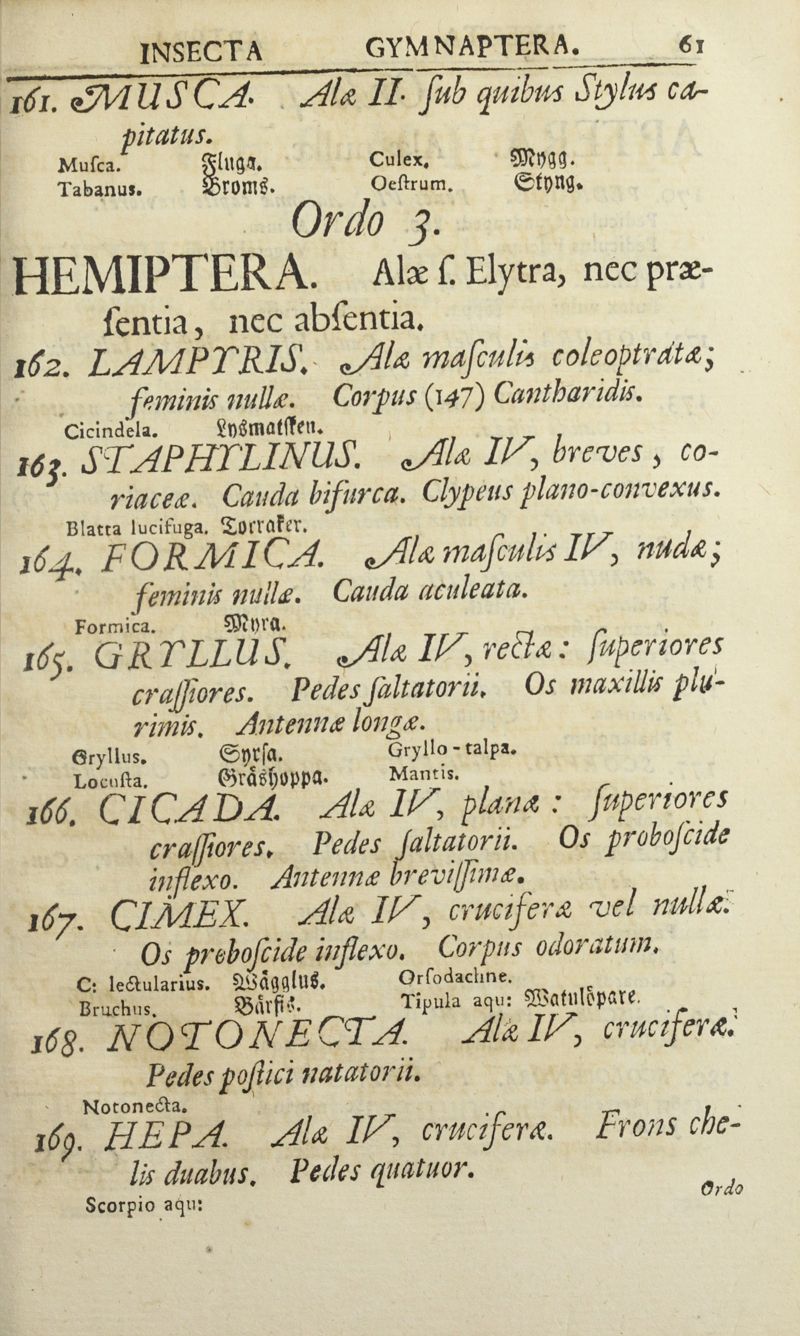 INSECTA GYMNAPTERA. 61
161. MUSCA. Alæ II. ſub quibus Stylus ca-
pitatus.
Muſca. Fluga. Culex. Mygg.
Tabanus. Broms. Oeſtrum. Styng.
Ordo 3.
HEMIPTERA. Alæ ſ. Elytra, nec præ-
ſentia, nec abſentia.
162. LAMPYRIS. Alæ maſculis coleoptrátæ;
feminis nullæ. Corpus (147) Cantharidis.
Cicindela. Lysmatſken.
163. STAPHYLINUS. Alæ IV, breves, co-
riaceæ. Cauda bifurca. Clypeus plano-convexus.
Blatta lucifuga. Torraker.
164. FORMICA. Alæ maſculis IV, nudæ;
feminis nullæ. Cauda aculeata.
Formica. Myra.
165. GRYLLUS. Alæ IV, rectæ: ſuperiores
craſſiores. Pedes ſaltatorii. Os maxillis plu-
rimis. Antennæ longæ.
Gryllus. Syrſa. Gryllo-talpa.
Locuſta. Gräshoppa. Mantis.
166. CICADA. Alæ IV, planæ: ſuperiores
craſſiores, Pedes ſaltatorii. Os proboſcide
inflexo. Antennæ breviſſimæ.
167. CIMEX. Alæ IV, cruciferæ vel nullæ.
Os proboſcide inflexo. Corpus odoratum.
C: lectularius. Wägglus. Orſodachne.
Bruchus. Bärfis. Tipula aqu: Watulöpare.
168. NOTONECTA. Alæ IV, cruciferæ.
Pedes poſtici natatorii.
Notonecta.
169. HEPA. Alæ IV, cruciferæ. Frons che-
lis duabus. Pedes quatuor.
Scorpio aqu:
Ordo